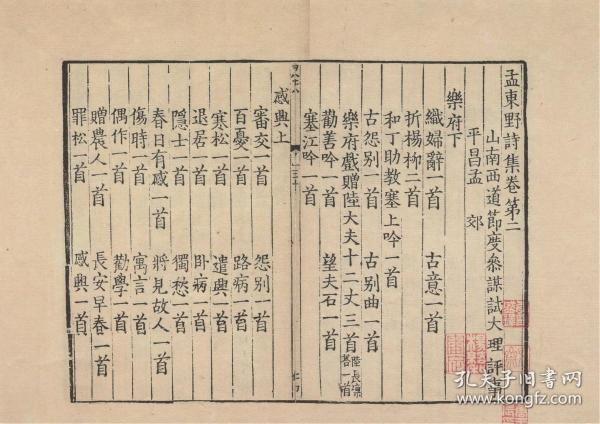 孟東野詩集卷第二
山南西道節度叅謀試大理評事
平昌孟 郊
樂府下
織婦辭一首 古意一首
折楊柳二首
和丁助教塞上吟一首
古怨别一首 古别曲一首
樂府戲贈陸大夫十二丈三首 陸長源荅一首
勸善吟一首 望夫石一首
塞江吟一首
感興上
審交一首 怨别一首
百憂一首 路病一首
寒松一首 遣興一首
退居一首 卧病一首
隱士一首 獨愁一首
春日有感一首 將見故人一首
傷時一首 寓言一首
偶作一首 勸學一首
贈農人一首 長安早春一首
罪松一首 感興一首
孔夫子旧书网
www.kongfz.com